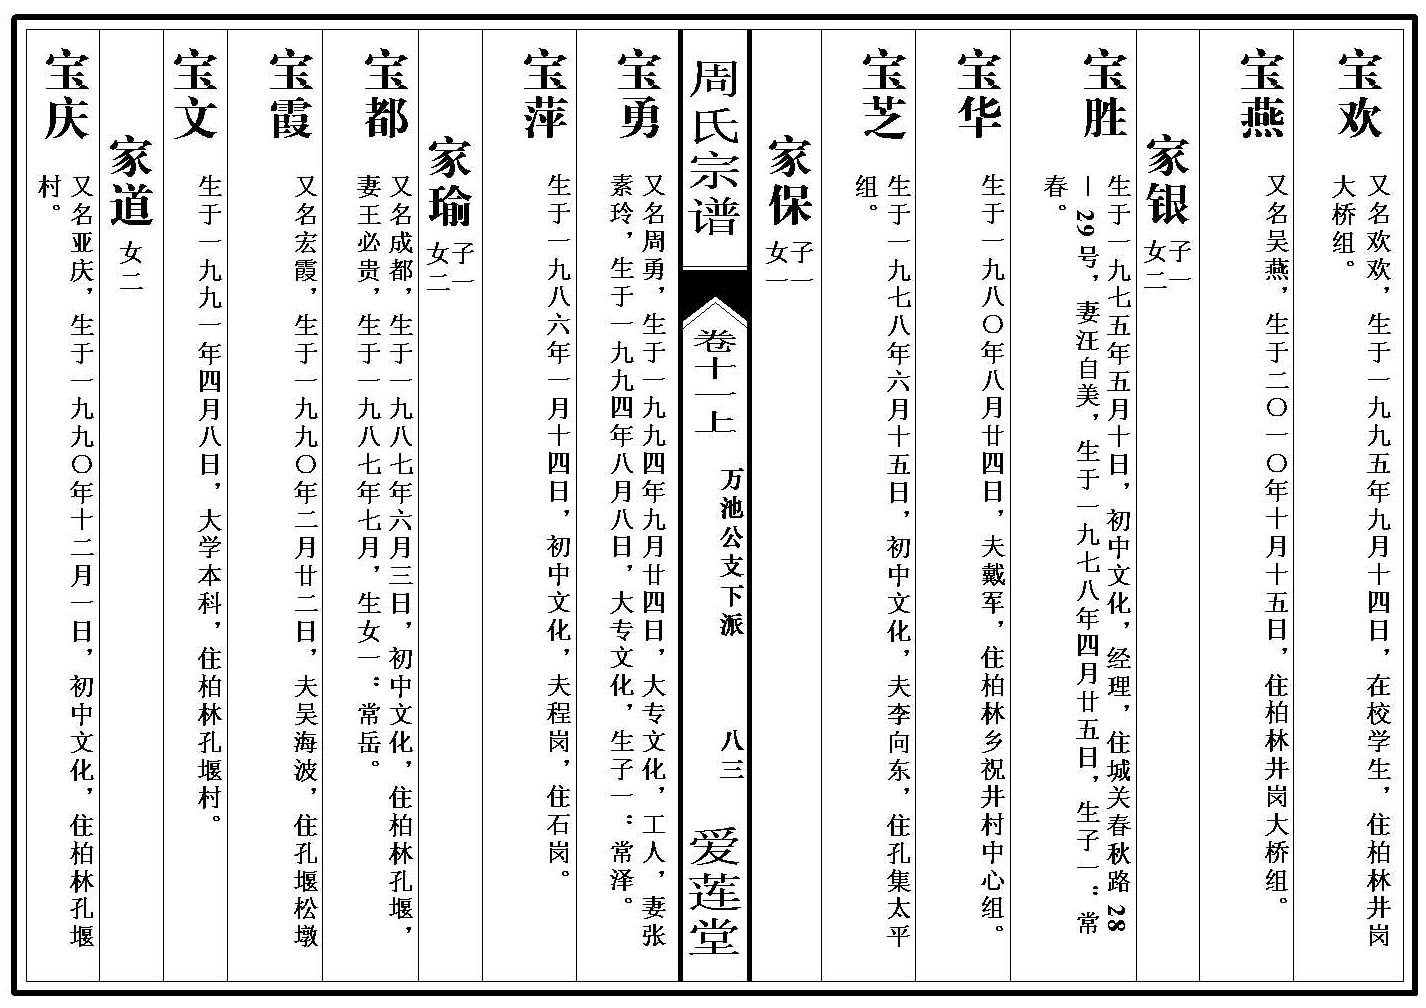 宝欢
又名欢欢，生于一九九五年九月十四日，在校学生，住柏林井岗
大桥组。
宝燕
又名吴燕，生于二〇一〇年十月十五日，住柏林井岗大桥组。
家银
子一
女二
宝胜
生于一九七五年五月十日，初中文化，经理，住城关春秋路28
—29号，妻汪自美，生于一九七八年四月廿五日，生子一：常
春。
宝华
生于一九八〇年八月廿四日，夫戴军，住柏林乡祝井村中心组。
宝芝
生于一九七八年六月十五日，初中文化，夫李向东，住孔集太平
组。
家保
子一
女一
周氏宗谱
卷十一上
万池公支下派
八三
爱莲堂
宝勇
又名周勇，生于一九九四年九月廿四日，大专文化，工人，妻张
素玲，生于一九九四年八月八日，大专文化，生子一：常泽。
宝萍
生于一九八六年一月十四日，初中文化，夫程岗，住石岗。
家瑜
子一
女二
宝都
又名成都，生于一九八七年六月三日，初中文化，住柏林孔堰，
妻王必贵，生于一九八七年七月，生女一：常岳。
宝霞
又名宏霞，生于一九九〇年二月廿二日，夫吴海波，住孔堰松墩
宝文
生于一九九一年四月八日，大学本科，住柏林孔堰村。
家道
女二
宝庆
又名亚庆，生于一九九〇年十二月一日，初中文化，住柏林孔堰
村。